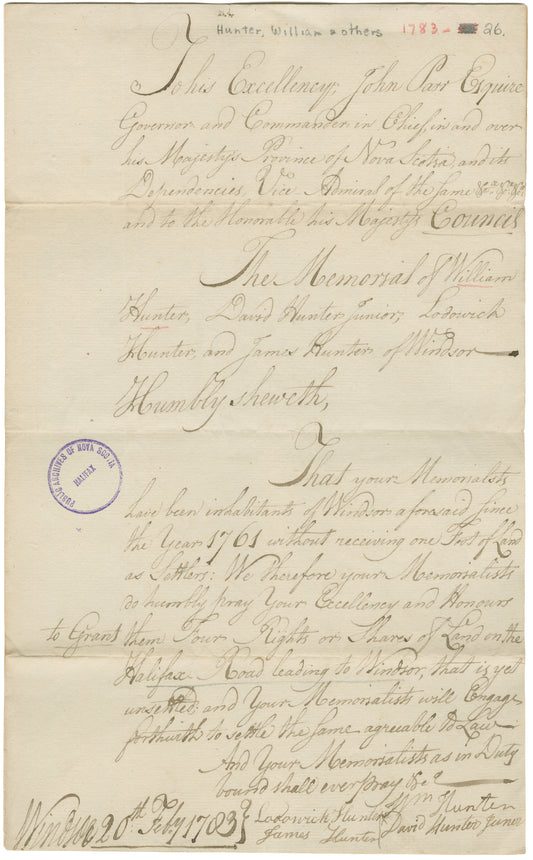 Hunter, William & others 1783 - 26.
To his Excellency, John Parr Esquire
Governor and Commander in Chief in and over
his Majestys Province of Nova Scotia and its
Dependencies, Vice Admiral of the same &ca &ca &ca
and to the Honorable his Majestys Council
The Memorial of William
Hunter, David Hunter Junior, Lodowich
Hunter, and James Hunter of Windsor
Humbly sheweth,
PUBLIC ARCHIVES OF NOVA SCOTIA
HALIFAX
That your Memorialists
have been inhabitants of Windsor aforesaid since
the Year 1761 without receiving one Foot of Land
as Settlers: We therefore your Memorialists
do humbly pray Your Excellency and Honours
to Grant them Four Rights or Shares of Land on the
Halifax Road leading to Windsor, that is yet
unsettled; and Your Memorialists will Engage
forthwith to settle the same agreeable to Law
And Your Memorialists as in Duty
bound shall ever pray &ca
Windsor 20th Feby 1783
Lodowich Hunter Wm Hunter
James Hunter David Hunter Juner